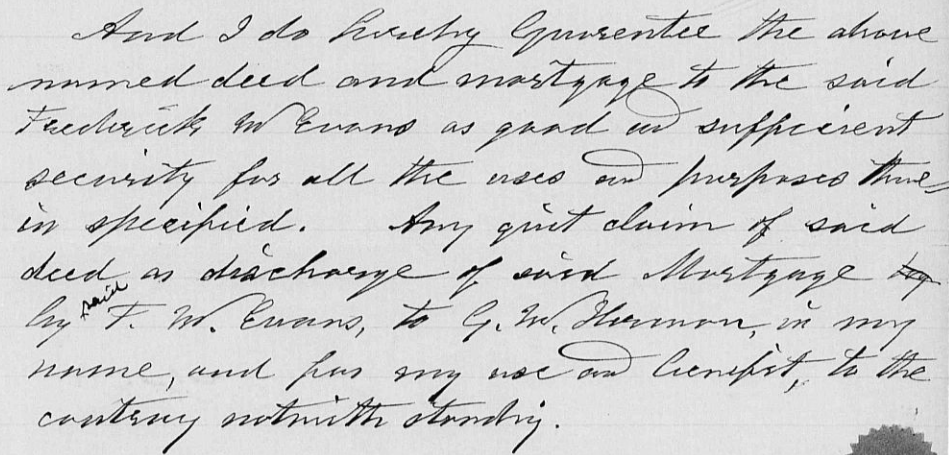 And I do hereby Guarentee the above
named deed and mortgage to the said
Frederick W Evans as good and sufficient
security for all the uses and purposes there
in specified. Any quit claim of said
deed or discharge of said Mortgage
by said F. W. Evans, to G. W. in my
name, and for my use and benefit, to the
contrary notwith standing.